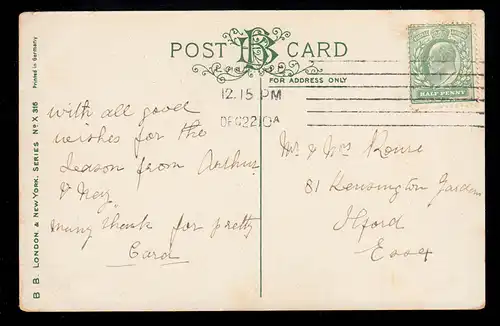 POST CARD
FOR ADDRESS ONLY
HALF PENNY
12.15 PM
DEC 22 10 A
with all good
wishes for the
Season from Arthur
& May
many thank for pretty
Card
Mr & Mrs
81 Kensington Gardens
Ilford
Essex
B B. LONDON & NEW YORK. SERIES No X 316
Printed in Germany